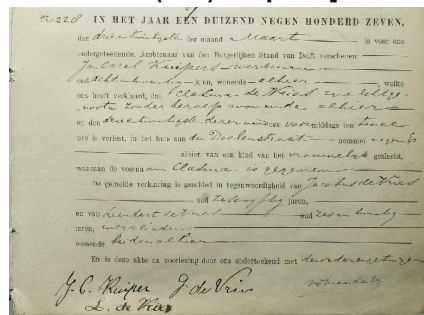 No. 228 IN HET JAAR EEN DUIZEND NEGEN HONDERD ZEVEN,
den drieëntwintigsten der maand Maart is voor ons
ondergeteekende, Ambtenaar van den Burgerlijken Stand van Delft verschenen:
Jan Carel Kuipers werkman
oud achtentwintig jaren, wonende alhier, welke
ons heeft verklaard, dat Clasina de Vries zijne echtge-
noote zonder beroep wonende alhier
op den dezer des voormiddags ten twee
ure is verlost, in het huis aan den Doelenstraat nommer
alhier, van een kind van het vrouwelijk geslacht,
waaraan de voornaam Clasina is gegeven
De gemelde verklaring is geschied in tegenwoordigheid van Jacobus de Vries
oud jaren,
en van Leendert de Vries oud jaren,
jaren, werklieden
wonende beiden alhier
En is deze akte na voorlezing door ons onderteekend met
J. C. Kuiper J. de Vries
L. de Vries